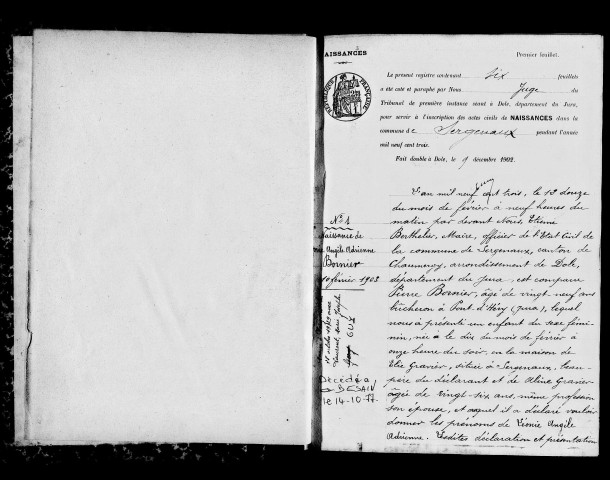 NAISSANCES
Premier feuillet.
RÉPUBLIQUE FRANÇAISE
Le présent registre contenant six feuillets
a été coté et paraphé par Nous Juge du
Tribunal de première instance séant à Dole, département du Jura,
pour servir à l'inscription des actes civils de NAISSANCES dans la
commune de Sergenaux pendant l'année
mil neuf cent trois.
Fait double à Dole, le 9 décembre 1902.
L'an mil neuf cent trois, le 12 douze
du mois de février à neuf heures du
matin par devant Nous, Etienne
Berthelier, Maire, officier de l'Etat Civil de
la commune de Sergenaux, canton de
Chaumergy, arrondissement de Dole,
département du Jura, est comparu
Pierre Bornier, âgé de vingt-neuf ans
bûcheron à Pont d'Héry (Jura), lequel
nous a présenté un enfant du sexe fémi-
nin, née le dix du mois de février à
onze heure du soir, en la maison de
Elie Gravier, située à Sergenaux, beau-
père du déclarant et de Aline Gravier
âgée de vingt six ans, même profession
son épouse, et auquel il a déclaré vouloir
donner les prénoms de Léonie Angèle
Adrienne. Lesdites déclaration et présentation
N° 1
Naissance de
Angèle Adrienne
Bornier
10 février 1903
Décédée
à BESAIN
le 14-10-77